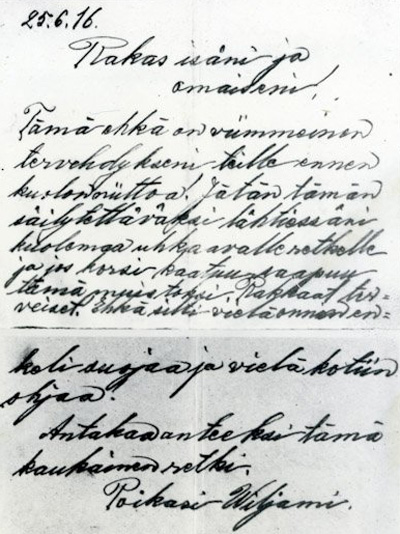 25.6.16.
Rakas isäni ja
omaiseni!
Tämä ehkä on viimmeinen
tervehdykseni teille ennen
kuolonniittoa! Jätän tämän
säilytettäväksi lähtiessäni
kuolemaa uhkaavalle retkelle
ja jos korsi kaatuu saapuu
tämä muistoksi. Rakkaat ter=
veiset. Ehkä silti vielä onnen en=
keli suojaa ja vielä kotiin
ohjaa.
Antakaa anteeksi tämä
kaukainen retki.
Poikasi Wiljami.